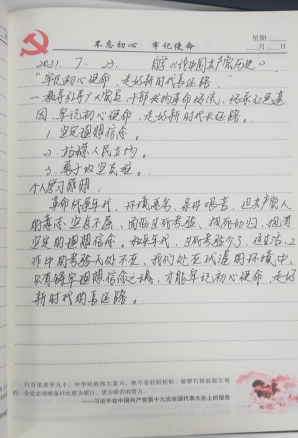 不忘初心 牢记使命
星期
月 日
2021.7.23. 《论中国共产党历史》
"牢记初心使命,走好新时代长征路。"
一、教育引导广大党员干部 革命传统,传承红色基
因,牢记初心使命,走好新时代长征路。
1. 坚定理想信念。
2. 站稳人民立场。
3. 勇于攻坚克难。
个人学习感想:
革命战争年代,环境恶劣,条件艰苦,但共产党人
的意志坚贞不屈,面临生死考验,视死如归,抱有
坚定的理想信念。和平年代,生死考验少了,但生活、工
作中的考验无处不在,我们处在
只有铸牢理想信念之魂,才能牢记初心使命,走好
新时代的长征路。
行百里者半九十。中华民族伟大复兴,绝不是轻轻松松、敲锣打鼓就能实现
的。全党必须准备付出更为艰巨、更为艰苦的努力。
——习近平在中国共产党第十九次全国代表大会上的报告